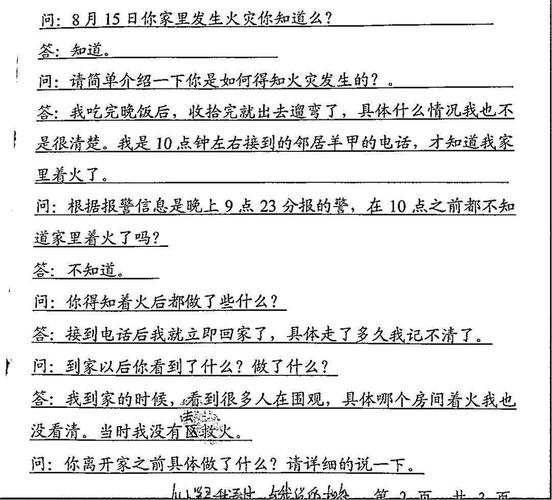 问：8月15日你家里发生火灾你知道么？
答：知道。
问：请简单介绍一下你是如何得知火灾发生的？。
答：我吃完晚饭后，收拾完就出去遛弯了，具体什么情况我也不
是很清楚。我是10点钟左右接到的邻居羊甲的电话，才知道我家
里着火了。
问：根据报警信息是晚上9点23分报的警，在10点之前都不知
道家里着火了吗？
答：不知道。
问：你得知着火后都做了些什么？
答：接到电话后我就立即回家了，具体走了多久我记不清了。
问：到家以后你看到了什么？做了什么？
答：我到家的时候，看到很多人在围观，具体哪个房间着火我也
没看清。当时我没有去救火。
问：你离开家之前具体做了什么？请详细的说一下。
第 2 页 共 3 页